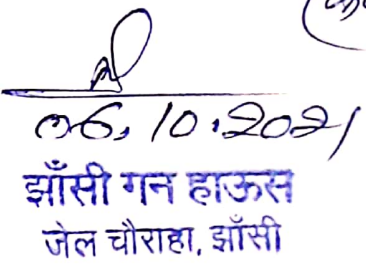 06.10.2021
झाँसी गन हाऊस
जेल चौराहा, झाँसी